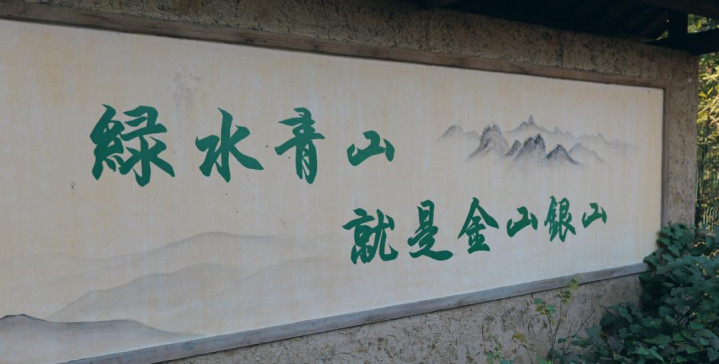 綠水青山
就是金山銀山